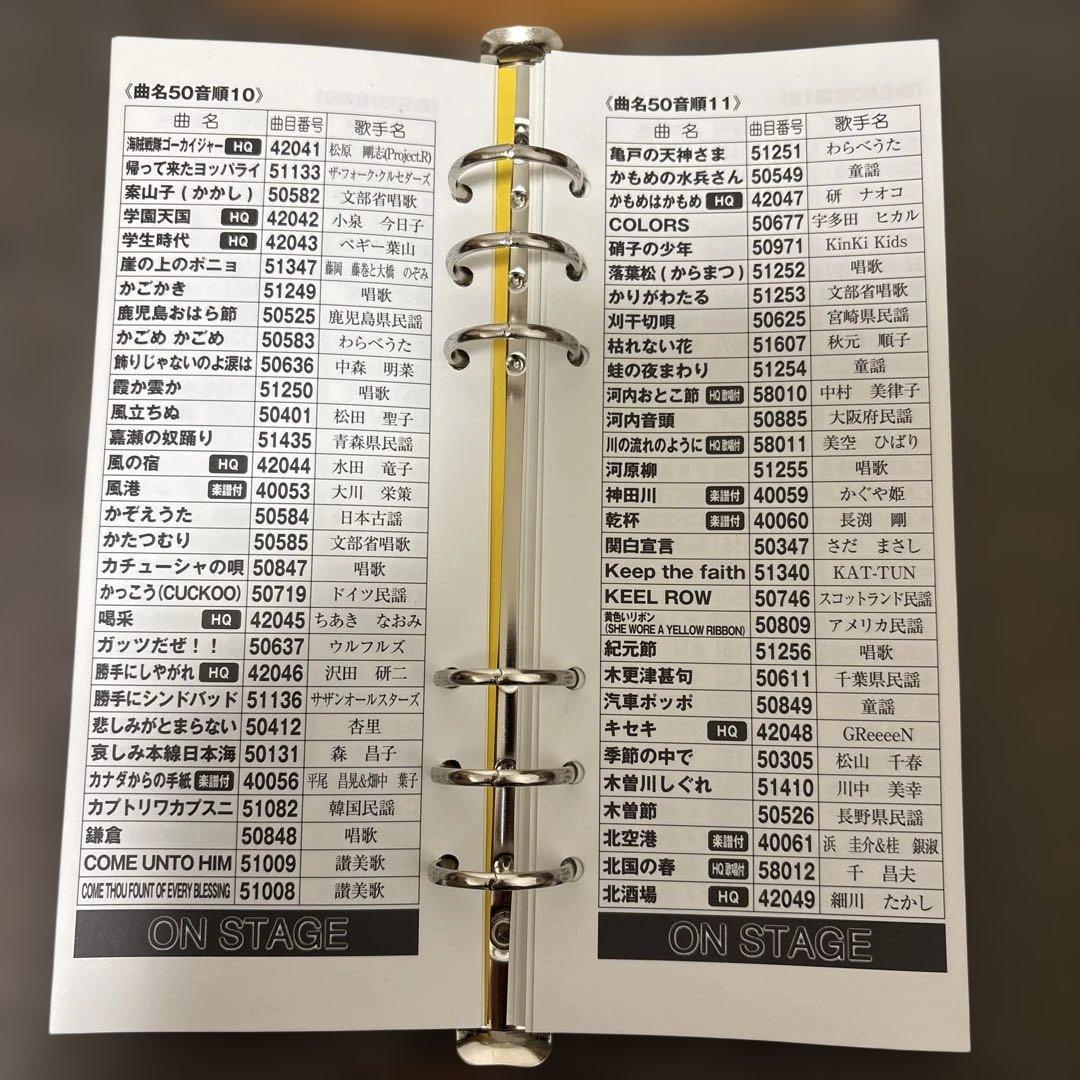 《曲名50音順10》
曲 名 曲目番号 歌手名
海賊戦隊ゴーカイジャー HQ 42041 松原 剛志(Project.R)
帰って来たヨッパライ 51133 ザ・フォーク・クルセダーズ
案山子(かかし) 50582 文部省唱歌
学園天国 HQ 42042 小泉 今日子
学生時代 HQ 42043 ペギー葉山
崖の上のポニョ 51347 藤岡 藤巻と大橋 のぞみ
かごかき 51249 唱歌
鹿児島おはら節 50525 鹿児島県民謡
かごめ かごめ 50583 わらべうた
飾りじゃないのよ涙は 50636 中森 明菜
霞か雲か 51250 唱歌
風立ちぬ 50401 松田 聖子
嘉瀬の奴踊り 51435 青森県民謡
風の宿 HQ 42044 水田 竜子
風港 楽譜付 40053 大川 栄策
かぞえうた 50584 日本古謡
かたつむり 50585 文部省唱歌
カチューシャの唄 50847 唱歌
かっこう(CUCKOO) 50719 ドイツ民謡
喝采 HQ 42045 ちあき なおみ
ガッツだぜ!! 50637 ウルフルズ
勝手にしやがれ HQ 42046 沢田 研二
勝手にシンドバッド 51136 サザンオールスターズ
悲しみがとまらない 50412 杏里
哀しみ本線日本海 50131 森 昌子
カナダからの手紙 楽譜付 40056 平尾 昌晃&畑中 葉子
カブトリワカブスニ 51082 韓国民謡
鎌倉 50848 唱歌
COME UNTO HIM 51009 讃美歌
COME THOU FOUNT OF EVERY BLESSING 51008 讃美歌
ON STAGE
《曲名50音順11》
曲 名 曲目番号 歌手名
亀戸の天神さま 51251 わらべうた
かもめの水兵さん 50549 童謡
かもめはかもめ HQ 42047 研 ナオコ
COLORS 50677 宇多田 ヒカル
硝子の少年 50971 KinKi Kids
落葉松(からまつ) 51252 唱歌
かりがわたる 51253 文部省唱歌
刈干切唄 50625 宮崎県民謡
枯れない花 51607 秋元 順子
蛙の夜まわり 51254 童謡
河内おとこ節 HQ歌唱付 58010 中村 美律子
河内音頭 50885 大阪府民謡
川の流れのように HQ歌唱付 58011 美空 ひばり
河原柳 51255 唱歌
神田川 楽譜付 40059 かぐや姫
乾杯 楽譜付 40060 長渕 剛
関白宣言 50347 さだ まさし
Keep the faith 51340 KAT-TUN
KEEL ROW 50746 スコットランド民謡
黄色いリボン
(SHE WORE A YELLOW RIBBON) 50809 アメリカ民謡
紀元節 51256 唱歌
木更津甚句 50611 千葉県民謡
汽車ポッポ 50849 童謡
キセキ HQ 42048 GReeeeN
季節の中で 50305 松山 千春
木曽川しぐれ 51410 川中 美幸
木曽節 50526 長野県民謡
北空港 楽譜付 40061 浜 圭介&桂 銀淑
北国の春 HQ歌唱付 58012 千 昌夫
北酒場 HQ 42049 細川 たかし
ON STAGE